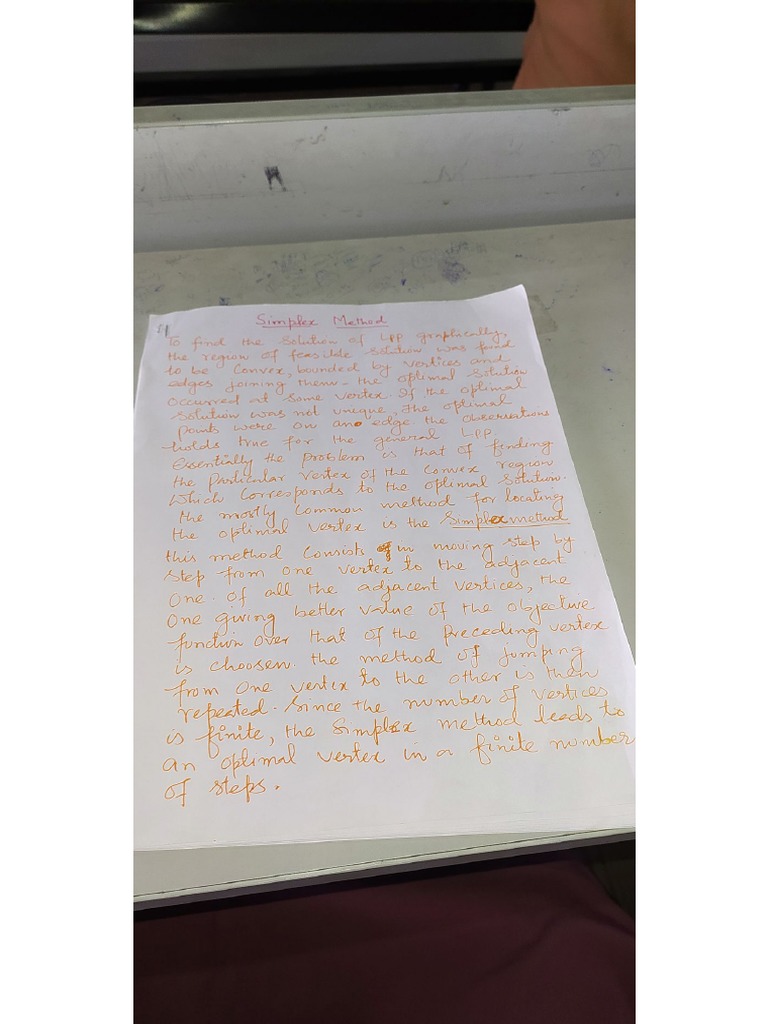 Simplex Method
To find the solution of LPP graphically,
the region of feasible solution was found
to be convex, bounded by vertices and
edges joining them - the optimal solution
occurred at some vertex. If the optimal
solution was not unique, the optimal
points were on an edge the observations
holds true for the general LPP.
Essentially the problem is that of finding
the particular vertex of the convex region
which corresponds to the optimal solution.
the mostly common method for locating
the optimal vertex is the Simplex method
this method consists in moving step by
step from one vertex to the adjacent
one. of all the adjacent vertices, the
one giving better value of the objective
function over that of the preceding vertex
is choosen. the method of jumping
from one vertex to the other is then
repeated. Since the number of vertices
is finite, the simplex method leads to
an optimal vertex in a finite number
of steps.